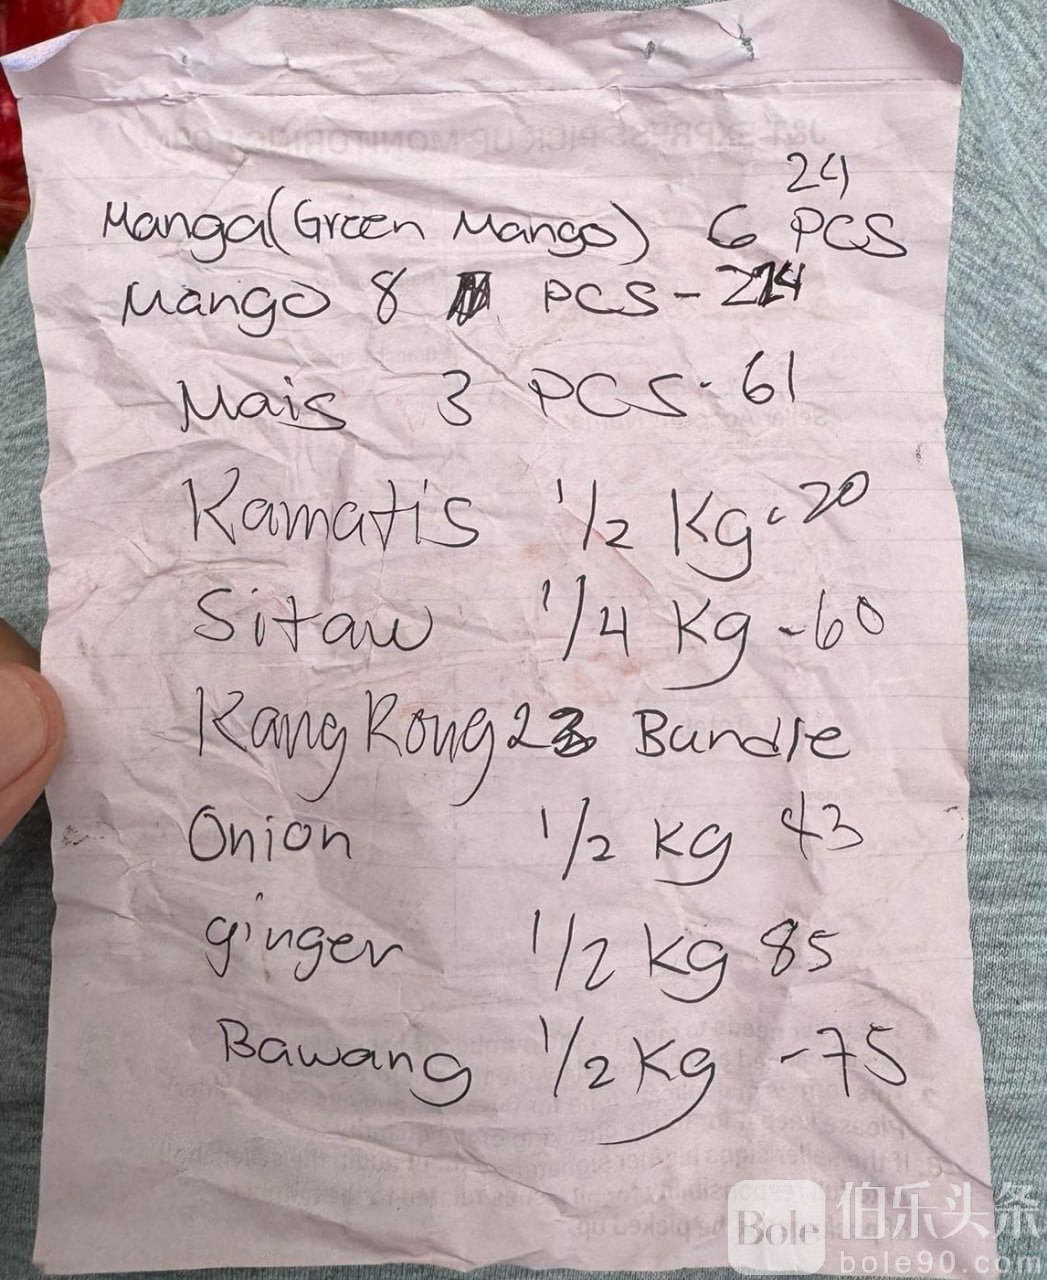 24
Manga (Green Mango) 6 PCS
Mango 8 PCS - 214
Mais 3 PCS - 61
Kamatis 1/2 Kg - 20
Sitaw 1/4 Kg - 60
Kang Kong 2 Bundle
Onion 1/2 kg 43
ginger 1/2 kg 85
Bawang 1/2 kg - 75
Bole 伯乐头条
bole90.com